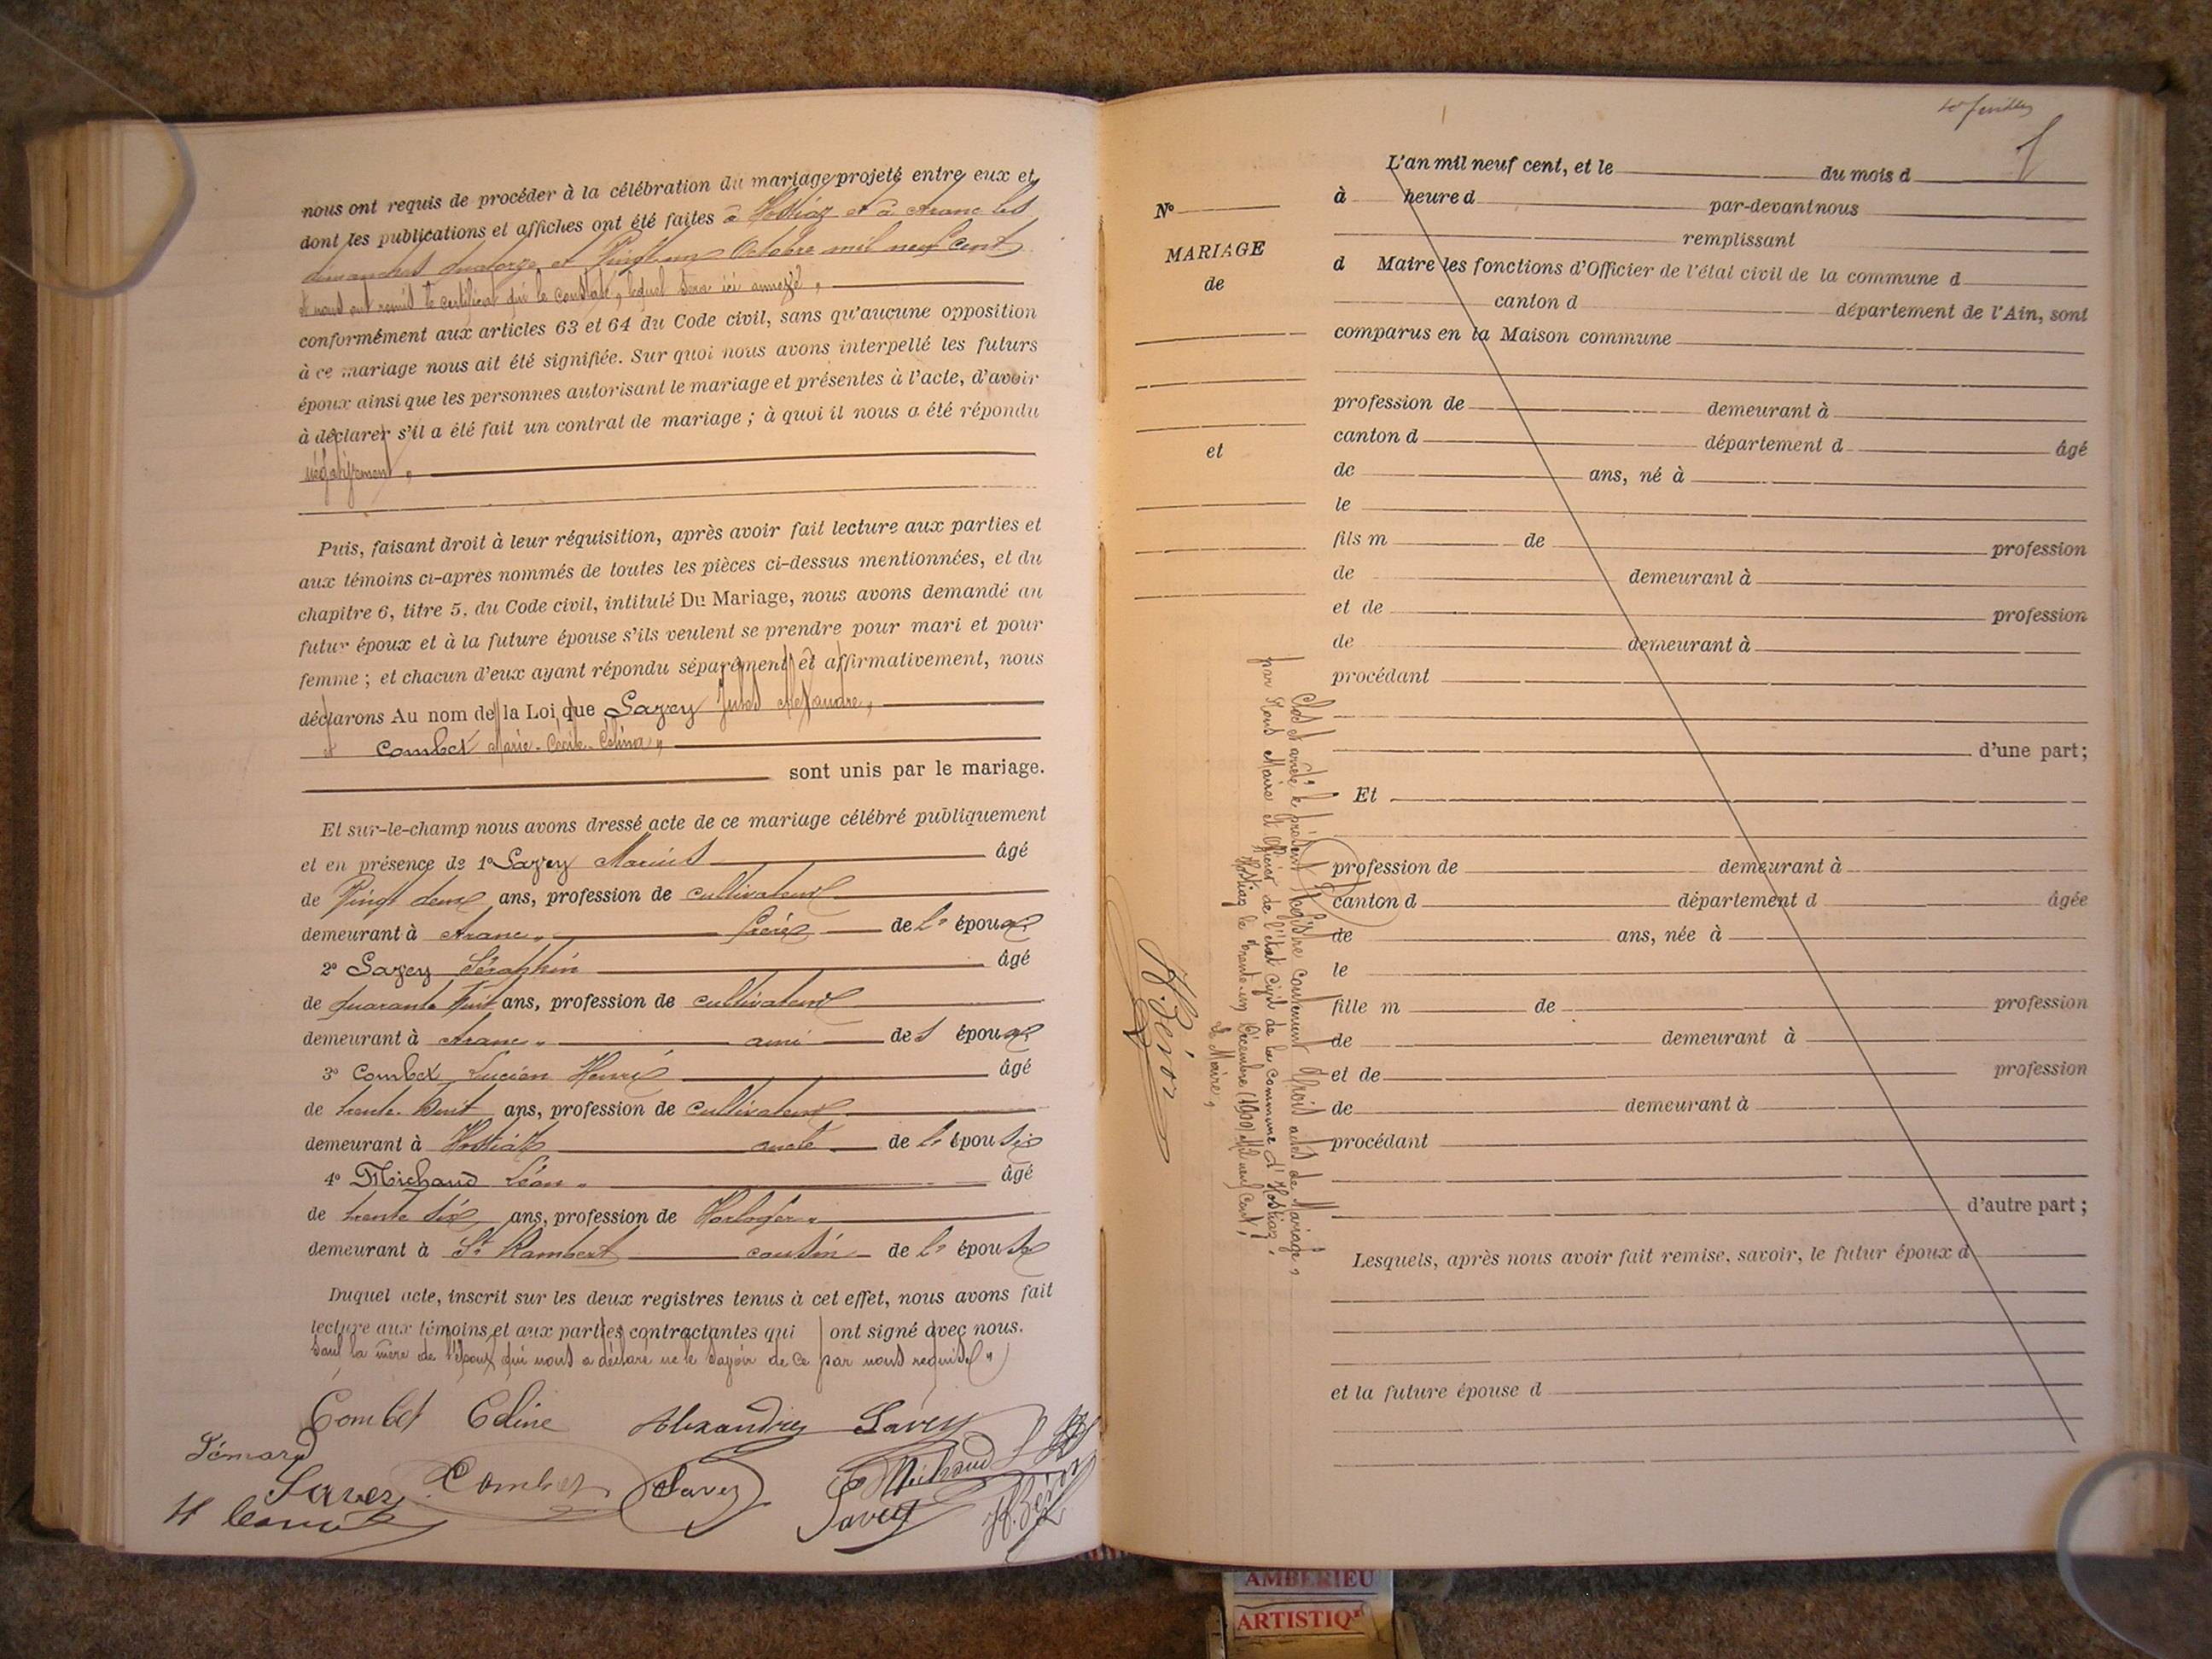 nous ont requis de procéder à la célébration du mariage projeté entre eux et
dont les publications et affiches ont été faites à Hostiaz et à Aranc les
dimanches quatorze et Vingt-un Octobre mil neuf Cent
et nous ont remis le certificat qui le constate, lequel sera ici annexé,
conformément aux articles 63 et 64 du Code civil, sans qu'aucune opposition
à ce mariage nous ait été signifiée. Sur quoi nous avons interpellé les futurs
époux ainsi que les personnes autorisant le mariage et présentes à l'acte, d'avoir
à déclarer s'il a été fait un contrat de mariage ; à quoi il nous a été répondu
négativement,
Puis, faisant droit à leur réquisition, après avoir fait lecture aux parties et
aux témoins ci-après nommés de toutes les pièces ci-dessus mentionnées, et du
chapitre 6, titre 5, du Code civil, intitulé Du Mariage, nous avons demandé au
futur époux et à la future épouse s'ils veulent se prendre pour mari et pour
femme ; et chacun d'eux ayant répondu séparément et affirmativement, nous
déclarons Au nom de la Loi que Savey Jules Alexandre,
et Combet Marie-Cécile-Célina,
sont unis par le mariage.
Et sur-le-champ nous avons dressé acte de ce mariage célébré publiquement
et en présence de 1° Savey Marius âgé
de Vingt deux ans, profession de cultivateur
demeurant à Aranc, frère de l' époux
2° Savey Séraphin âgé
de quarante huit ans, profession de cultivateur
demeurant à Aranc, ami des époux
3° Combet Lucien Henri âgé
de trente-huit ans, profession de cultivateur
demeurant à Hostiaz oncle de l' épouse
4° Michaud Léon, âgé
de trente six ans, profession de Horloger,
demeurant à St Rambert cousin de l' épouse
Duquel acte, inscrit sur les deux registres tenus à cet effet, nous avons fait
lecture aux témoins et aux parties contractantes qui ont signé avec nous.
sauf la mère de l'époux qui nous a déclaré ne le savoir de ce par nous requise,
Combet Céline Alexandre Savey
Sémard Michaud L
Savey Combet Savey Savey H. Béior
10e feuillet
L'an mil neuf cent, et le du mois d
N° à heure d par-devant nous
remplissant
MARIAGE d Maire les fonctions d'Officier de l'état civil de la commune d
de canton d département de l'Ain, sont
comparus en la Maison commune
profession de demeurant à
et canton d département d âgé
de ans, né à
le
fils m de profession
de demeurant à
et de profession
de demeurant à
procédant
d'une part ;
Et
profession de demeurant à
canton d département d âgée
de ans, née à
le
fille m de profession
de demeurant à
et de profession
de demeurant à
procédant
d'autre part ;
Lesquels, après nous avoir fait remise, savoir, le futur époux d
et la future épouse d
Clos et arrêté le présent Registre contenant Trois actes de Mariage,
par Nous Maire et Officier de l'état civil de la commune d'Hostiaz,
Hostiaz le trente-un Décembre (1900) Mil neuf Cent,
Le Maire,
AMBERIEU
ARTISTIQ